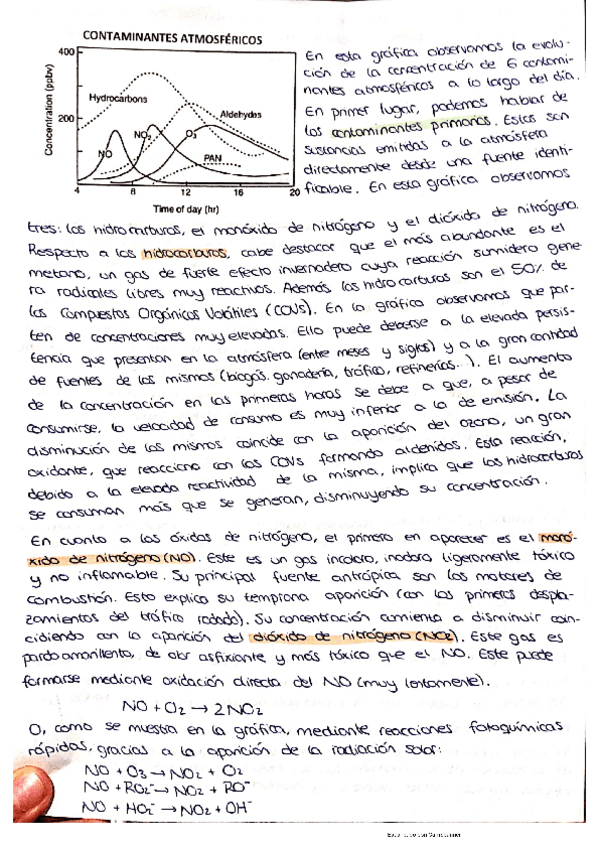 CONTAMINANTES ATMOSFÉRICOS
400
200
Concentration (ppbv)
Hydrocarbons
Aldehydes
NO
NO₂
O₃
PAN
4 8 12 16 20
Time of day (hr)
En esta gráfica observamos la evolu-
ción de la concentración de 6 contami-
nantes atmosféricos a lo largo del día.
En primer lugar, podemos hablar de
los contaminantes primarios. Estos son
sustancias emitidas a la atmósfera
directamente desde una fuente identi-
ficable. En esta gráfica observamos
tres: los hidrocarburos, el monóxido de nitrógeno y el dióxido de nitrógeno.
Respecto a los hidrocarburos, cabe destacar que el más abundante es el
metano, un gas de fuerte efecto invernadero cuya reacción sumidero gene-
ra radicales libres muy reactivos. Además los hidrocarburos son el 50% de
los Compuestos Orgánicos Volátiles (COVs). En la gráfica observamos que par-
ten de concentraciones muy elevadas. Ello puede deberse a la elevada persis-
tencia que presentan en la atmósfera (entre meses y siglos) y a la gran cantidad
de fuentes de los mismos (biogás, ganadería, tráfico, refinerías...). El aumento
de la concentración en las primeras horas se debe a que, a pesar de
consumirse, la velocidad de consumo es muy inferior a la de emisión. La
disminución de los mismos coincide con la aparición del ozono, un gran
oxidante, que reacciona con los COVs formando aldehidos. Esta reacción,
debido a la elevada reactividad de la misma, implica que los hidrocarburos
se consuman más que se generan, disminuyendo su concentración.
En cuanto a los óxidos de nitrógeno, el primero en aparecer es el monó-
xido de nitrógeno (NO). Este es un gas incoloro, inodoro, ligeramente tóxico
y no inflamable. Su principal fuente antrópica son los motores de
combustión. Esto explica su temprana aparición (con los primeros despla-
zamientos del tráfico rodado). Su concentración comienza a disminuir coin-
cidiendo con la aparición del dióxido de nitrógeno (NO2). Este gas es
pardo amarillento, de olor asfixiante y más tóxico que el NO. Este puede
formarse mediante oxidación directa del NO (muy lentamente).
NO + O₂ → 2NO₂
O, como se muestra en la gráfica, mediante reacciones fotoquímicas
rápidas, gracias a la aparición de la radiación solar:
NO + O₃ → NO₂ + O₂
NO + RO₂⁻ → NO₂ + RO⁻
NO + HO₂⁻ → NO₂ + OH⁻